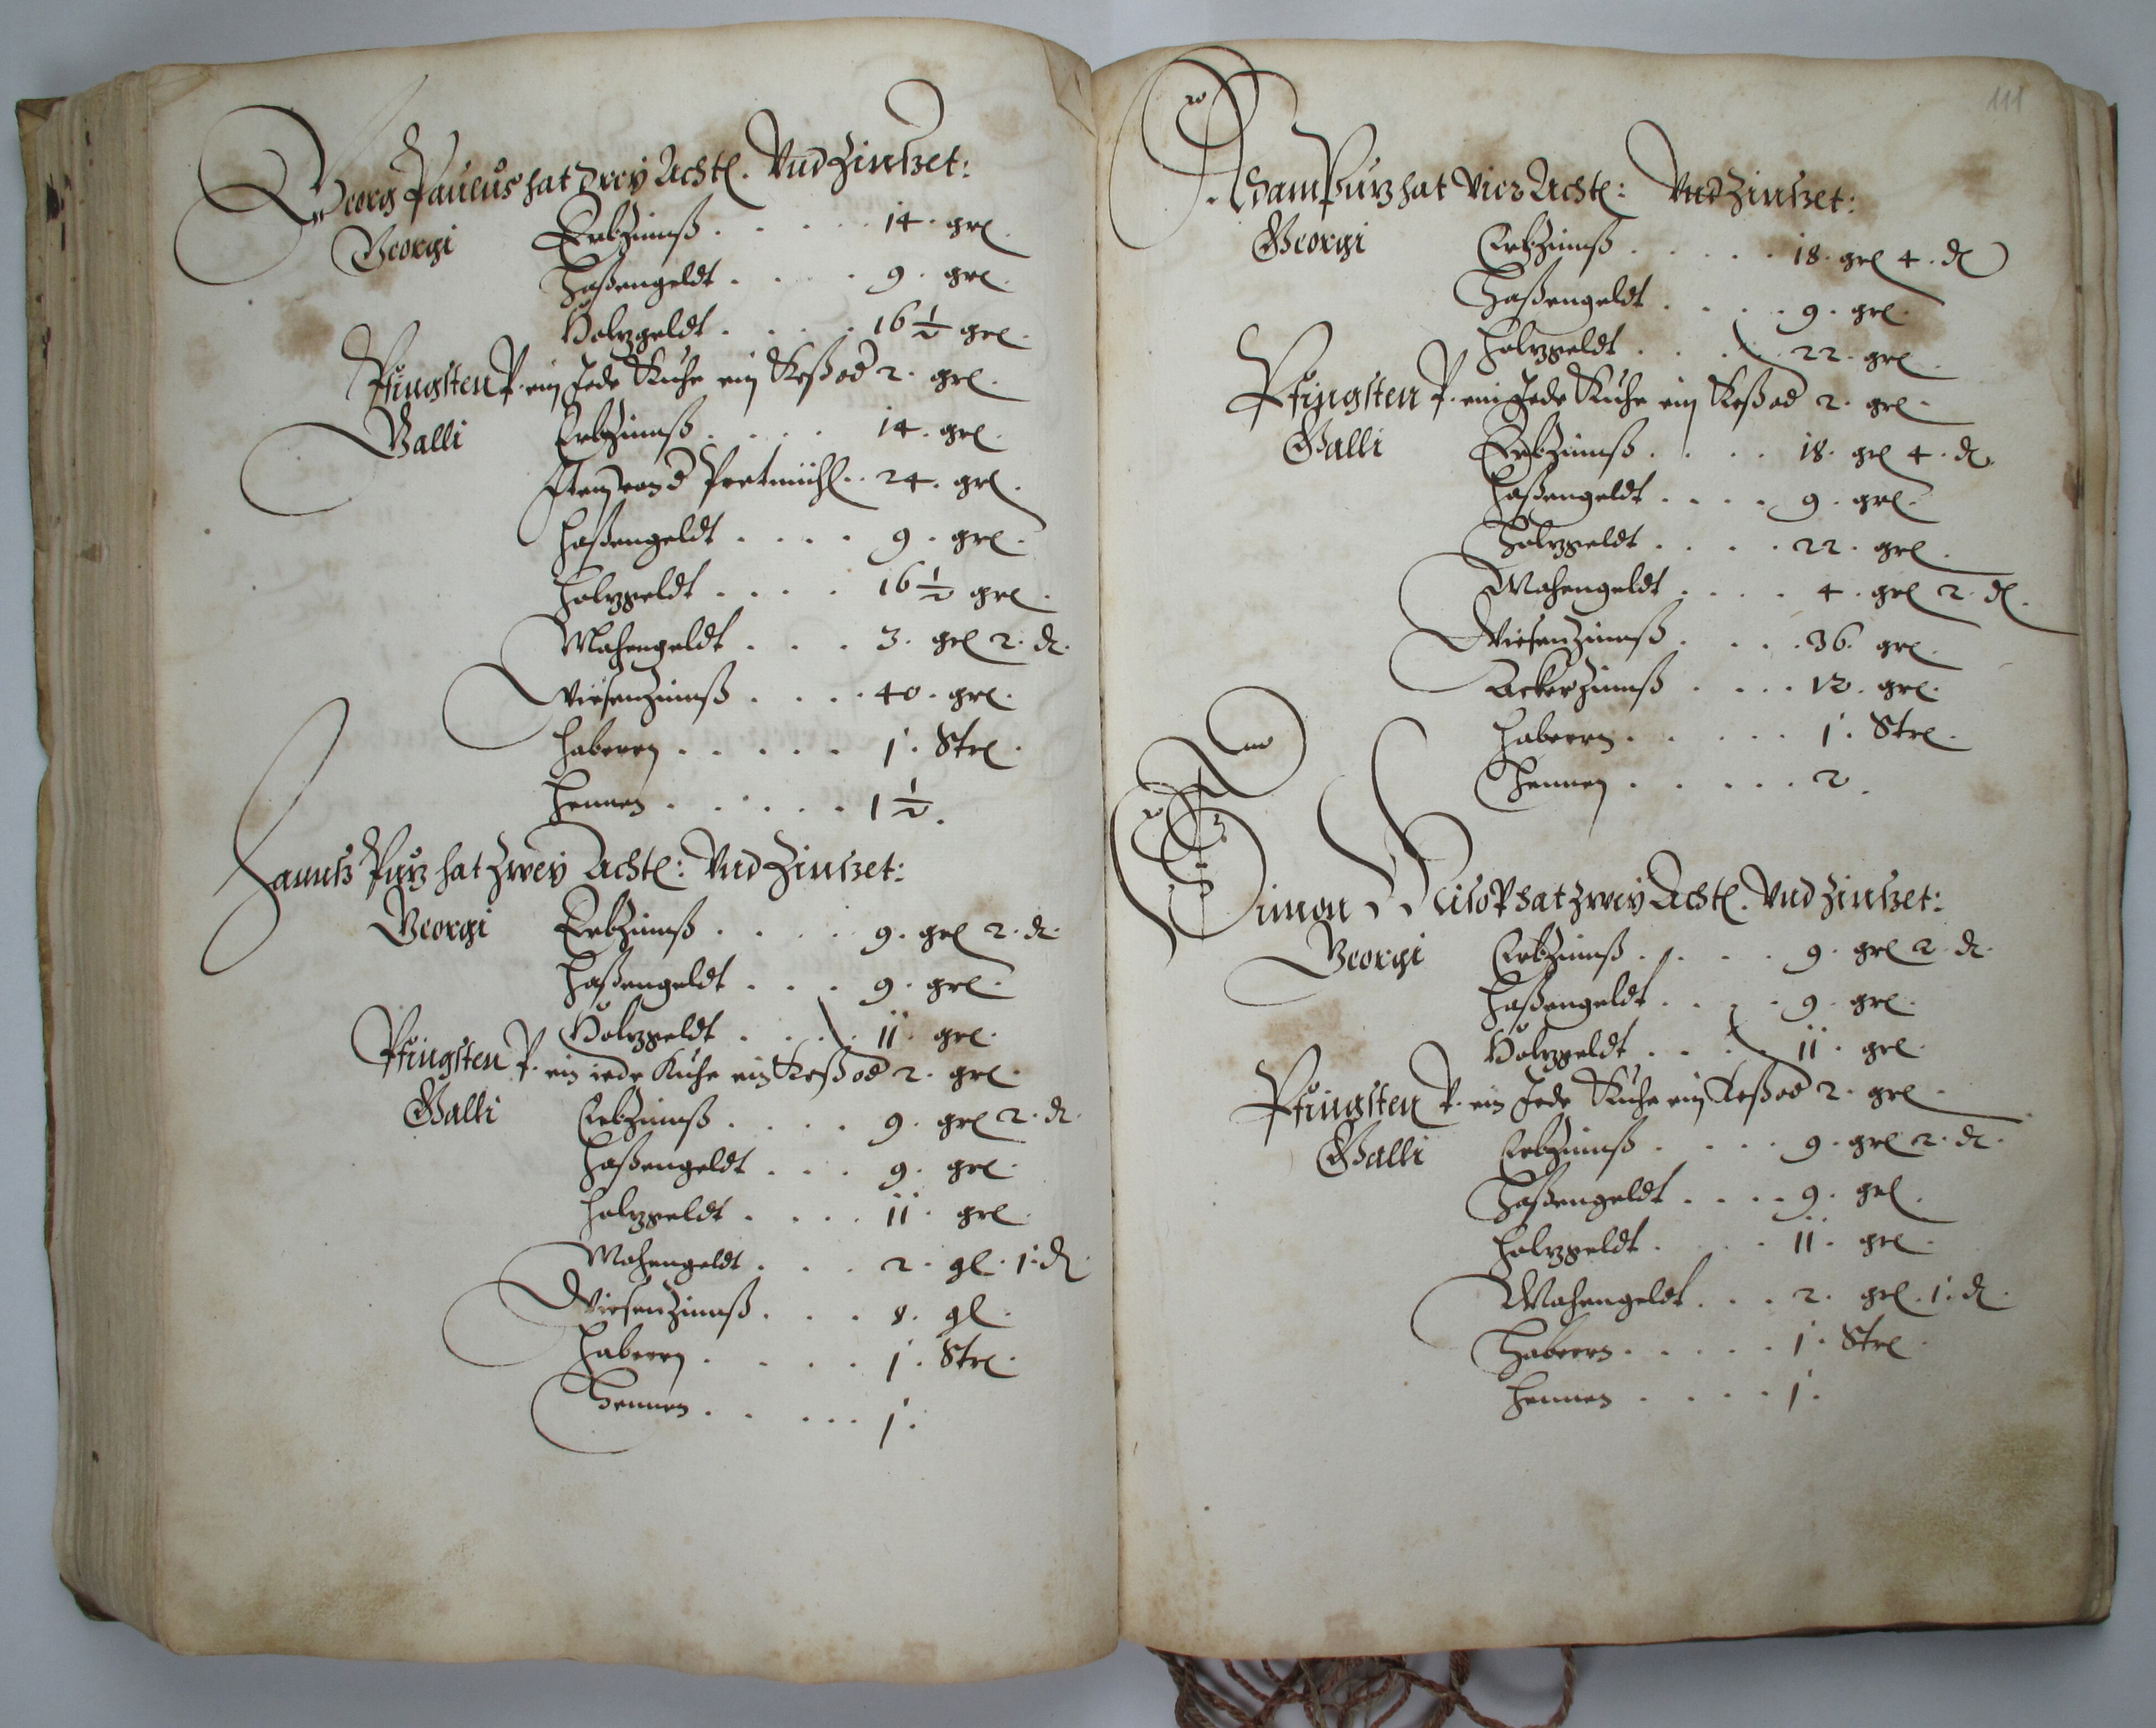 Georg Paulus hat drey Achtl. Vnd Zinßet:
Georgi Erbzinnß . . . . . 14 . grl.
Haßengeldt . . . . 9 . grl.
Holzgeldt . . . . 16 ½ grl.
Pfingsten P. ein Jede Kuhe ein Keß od 2 . grl.
Galli Erbzinnß . . . . 14 . grl.
Item von d Pretmühl . . 24 . grl.
Haßengeldt . . . . 9 . grl.
Holzgeldt . . . . 16 ½ grl.
Mahengeldt . . . 3 . grl 2 . d.
Wiesenzinnß . . . . 40 . grl.
Habern . . . . . 1 . Strl.
Hennen . . . . . 1 ½ .
Hannß Purz hat Zwey Achtl: Vnd Zinßet:
Georgi Erbzinnß . . . . 9 . grl 2 . d.
Haßengeldt . . . 9 . grl.
Holzgeldt . . . . 11 . grl.
Pfingsten P. ein iede Kuhe ein Keß od 2 . grl.
Galli Erbzinnß . . . . 9 . grl 2 . d.
Haßengeldt . . . 9 . grl.
Holzgeldt . . . . 11 . grl.
Mahengeldt . . . 2 . gl . 1 . d.
Wiesenzinnß . . . 8 . gl .
Habern . . . . 1 . Strl.
Hennen . . . . . 1 .
111
Adam Purz hat Vier Achtl: Vnd Zinßet:
Georgi Erbzinnß . . . . . 18 . grl 4 . d
Haßengeldt . . . . 9 . grl.
Holzgeldt . . . . 22 . grl.
Pfingsten P. ein Jede Kuhe ein Keß od 2 . grl.
Galli Erbzinnß . . . . 18 . grl 4 . d.
Haßengeldt . . . . 9 . grl.
Holzgeldt . . . . 22 . grl.
Mahengeldt . . . . 4 . grl 2 . d.
Wiesenzinnß . . . . 36 . grl.
Ackerzinnß . . . . 12 . grl.
Habern . . . . . 1 . Strl.
Hennen . . . . . 2 .
Simon hat Zwey Achtl. Vnd Zinßet:
Georgi Erbzinnß . . . . 9 . grl 2 . d.
Haßengeldt . . . . 9 . grl.
Holzgeldt . . . . 11 . grl.
Pfingsten P. ein Jede Kuhe ein Keß od 2 . grl.
Galli Erbzinnß . . . . 9 . grl 2 . d.
Haßengeldt . . . . 9 . grl.
Holzgeldt . . . . 11 . grl.
Mahengeldt . . . 2 . grl . 1 . d.
Habern . . . . . 1 . Strl.
Hennen . . . . 1 .